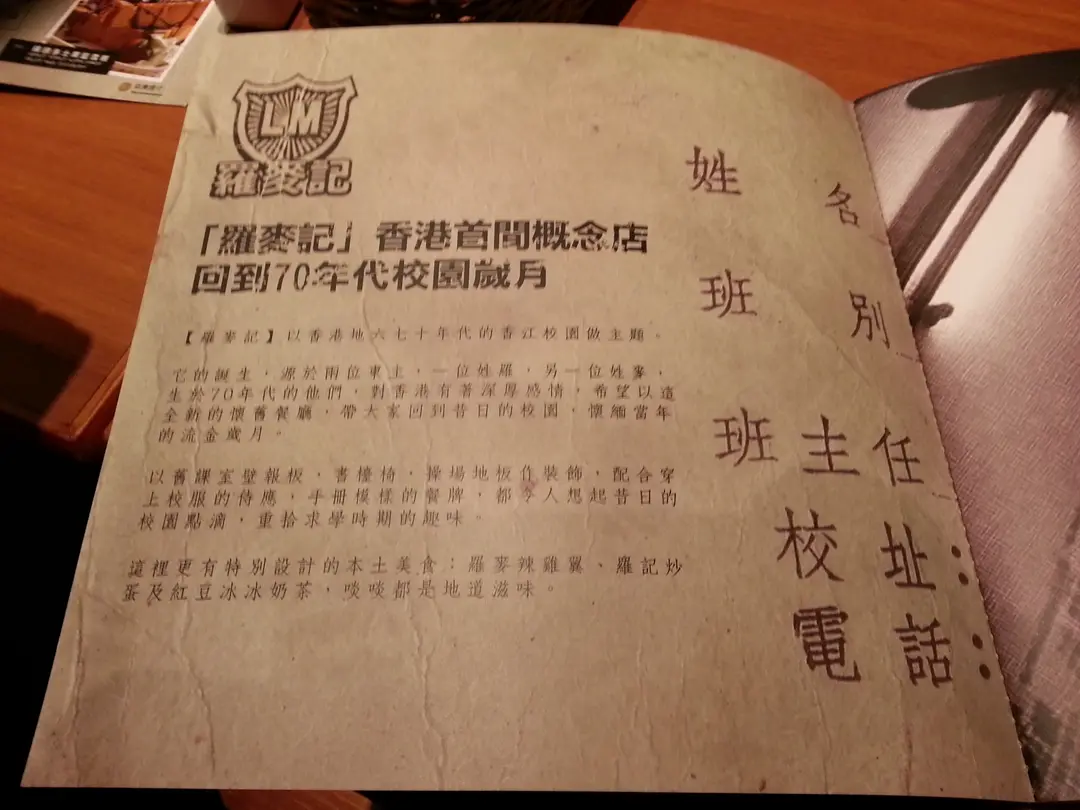 LM
羅麥記
「羅麥記」香港首間概念店
回到70年代校園歲月
【羅麥記】以香港地六七十年代的香江校園做主題。
它的誕生，源於兩位東主，一位姓羅，另一位姓麥，
生於70年代的他們，對香港有著深厚感情，希望以這
全新的懷舊餐廳，帶大家回到昔日的校園，懷緬當年
的流金歲月。
以舊課室壁報板，書檯椅，操場地板作裝飾，配合穿
上校服的侍應，手冊模樣的餐牌，都令人想起昔日的
校園點滴，重拾求學時期的趣味。
這裡更有特別設計的本土美食；羅麥辣雞翼、羅記炒
蛋及紅豆冰冰奶茶，啖啖都是地道滋味。
姓名
班別
班主任
校址：
電話：